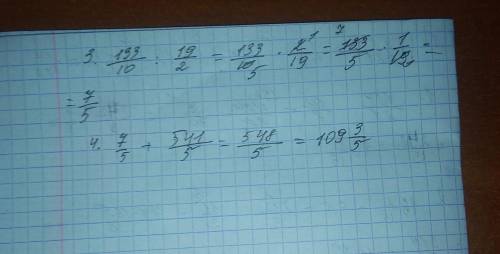 3. 133/10 : 19/2 = 133/10 5 · 2 1/19 = 7 133/5 · 1/19 =
= 7/5
4. 7/5 + 541/5 = 548/5 = 109 3/5